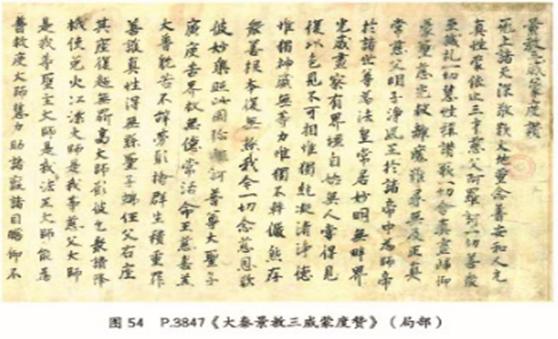 景教三威蒙度讚
无上諸天深敬歎大地重念普安和人元
真性蒙依止三才慈父阿羅訶一切善眾
至誠礼一切慧性稱讚歌一切含真盡歸仰
蒙聖慈光救離魔難尋無及正真
常慈父明子淨風王於諸帝中為師帝
於諸世尊為法皇常居妙明無畔界
光威盡察有界疆自始無人嘗得見
復以色見不可相惟獨絕凝清淨德
惟獨神威無等力惟獨不轉儼然存
眾善根本復無極我今一切念慈恩歎
彼妙樂照此國彌施訶普尊大聖子
廣度苦界救無億常活命王慈喜羔
大普耽苦不辭勞願捨群生積重罪
善護真性得無繇聖子端任父右座
其座復超無鼎高大師願彼乞眾請降
栰使免火江漂大師是我等慈父大師
是我等聖主大師是我法王大師能為
普救度大師慧力助諸羸諸目瞻仰不
图54 P.3847《大秦景教三威蒙度赞》(局部)